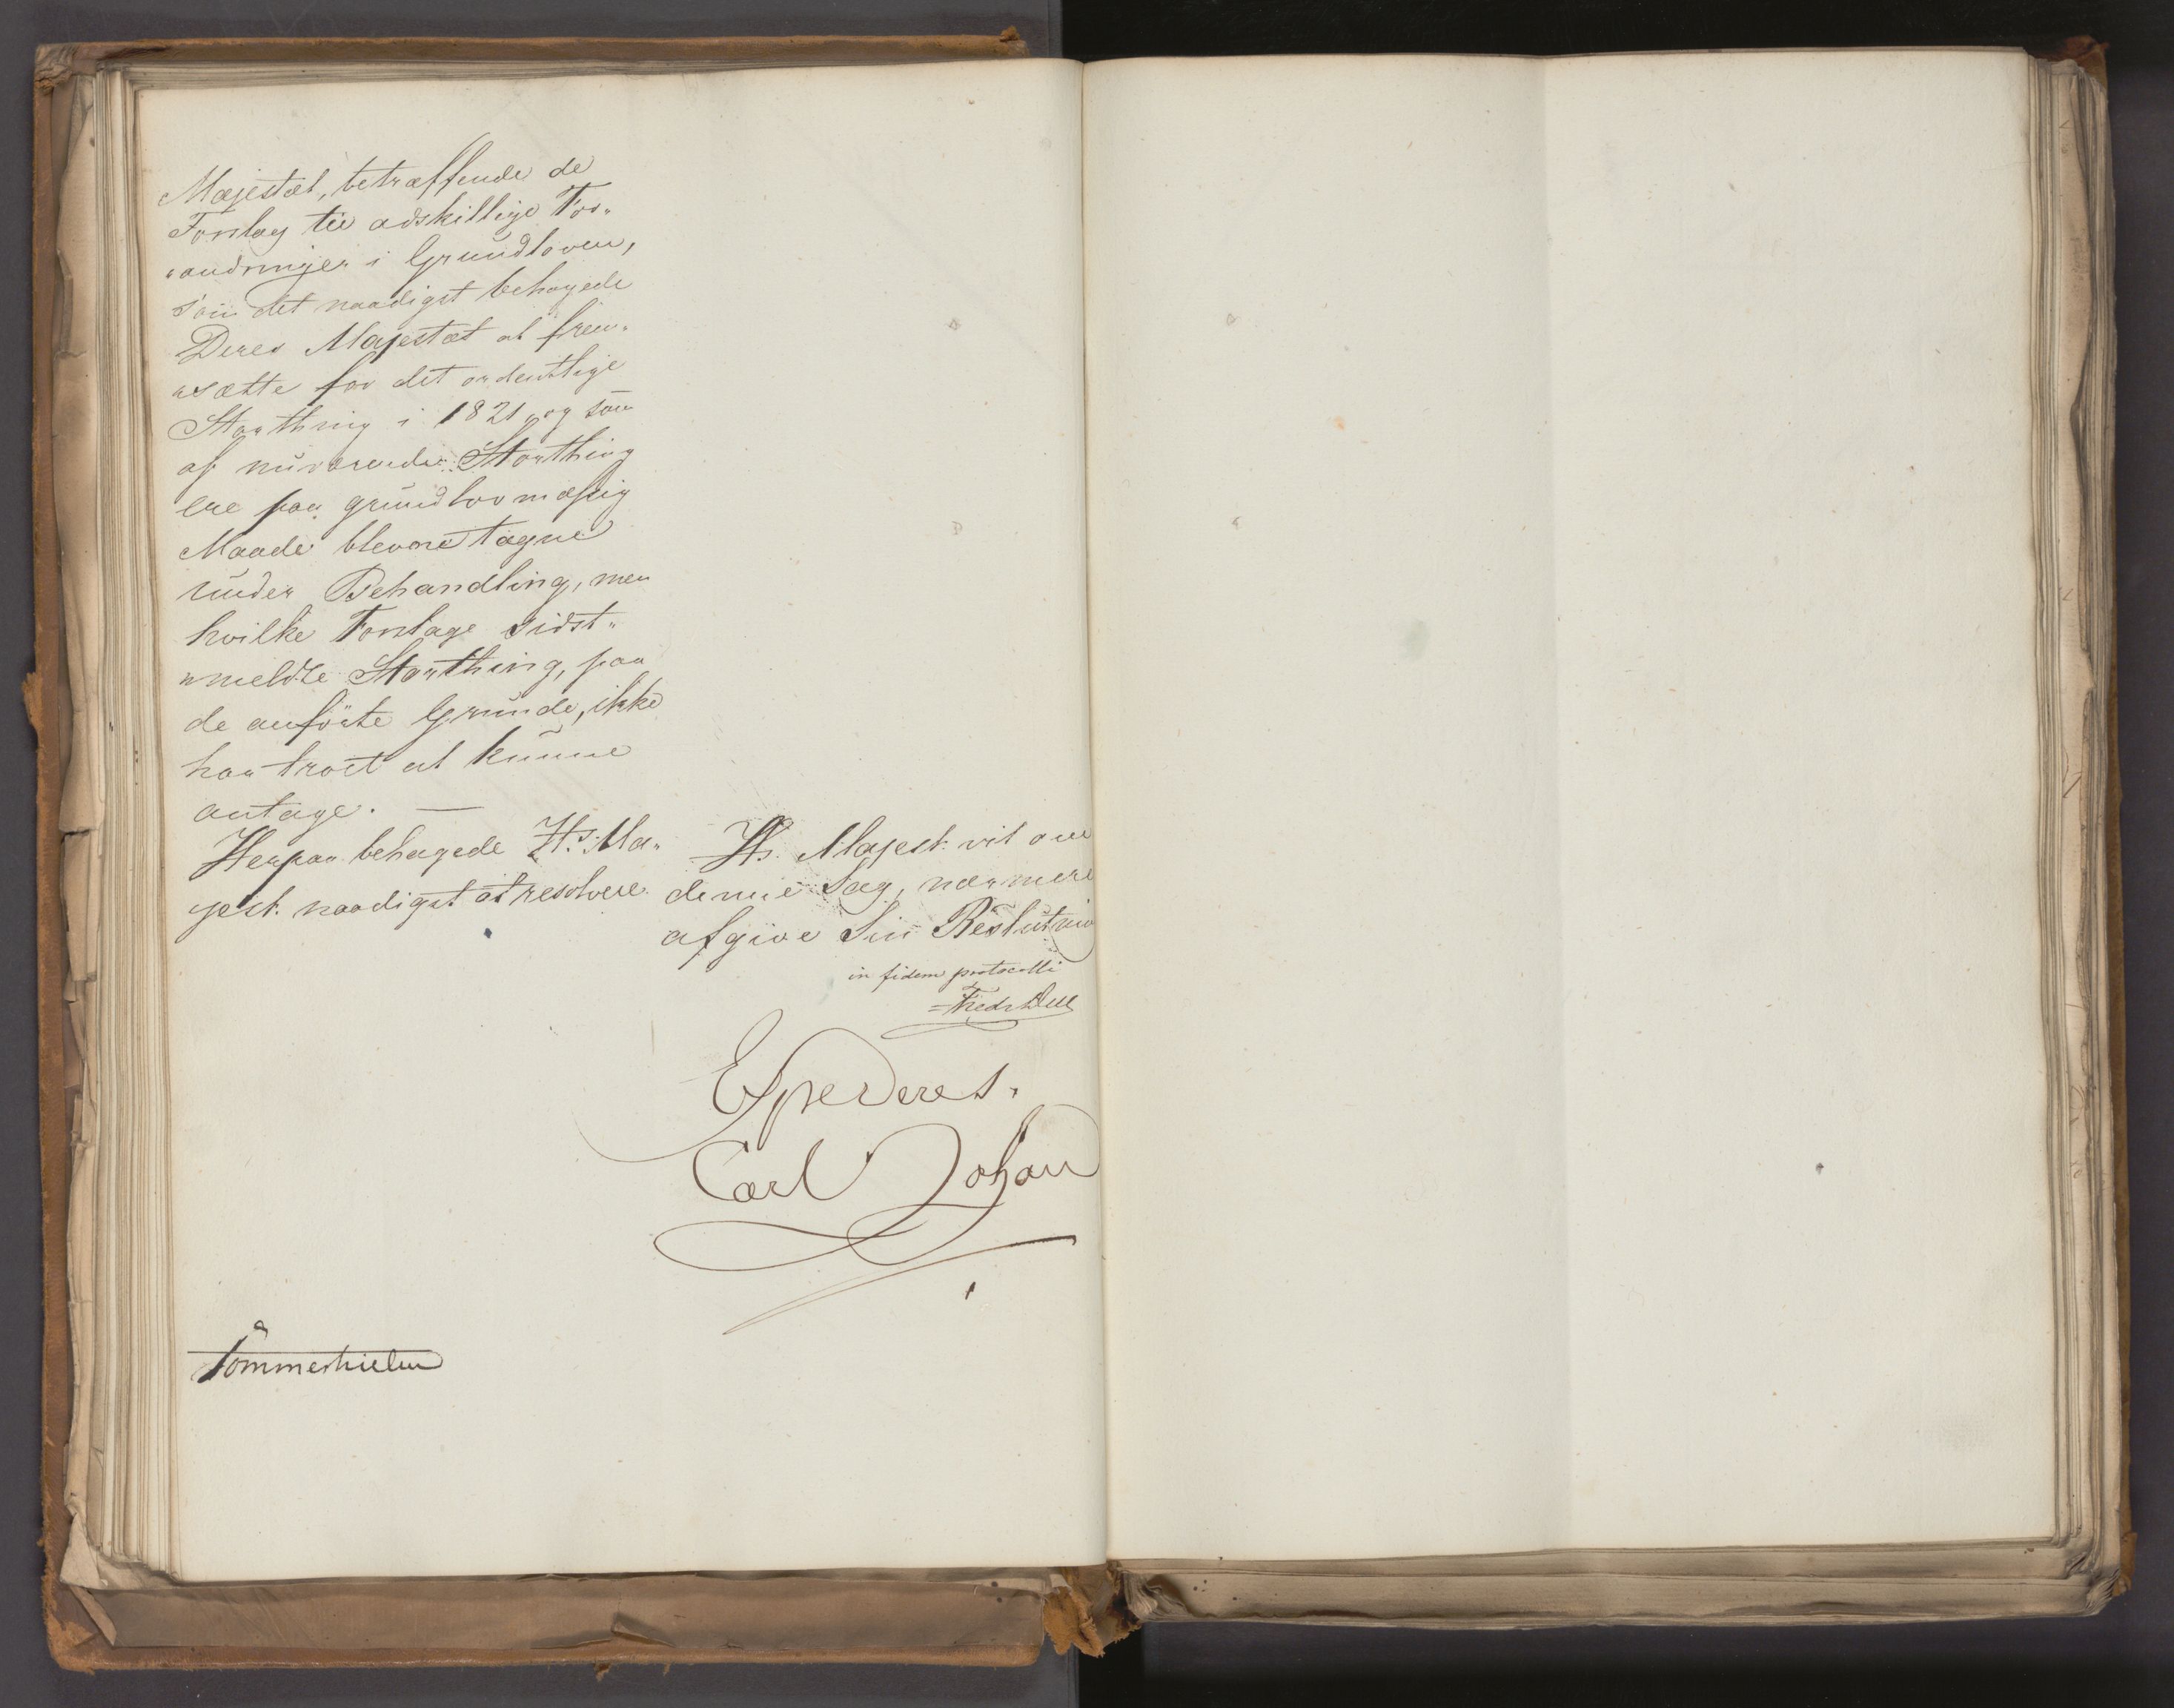 Majestæt, betræffende de
Forslag til adskillige For„
„andringer i Grundloven,
som det naadigst behagede
Deres Majestæt at frem„
„sætte for det ordentlige
Storthing i 1821, og som
af nuværende Storthing
ere paa grundlovmæssig
Maade blevne tagne
under Behandling, men
hvilke Forslage sidst„
„meldte Storthing, paa
de anförte Grunde, ikke
har troet at kunne
antage. —
Herpaa behagede Hs. Ma„
jest. naadigst at resolvere
Hs. Majest. vil om
denne Sag, nærmere
afgive Sin Beslutning
in fidem protocolli
Fredr Due
Expederes.
Carl Johan
Sommerhielm